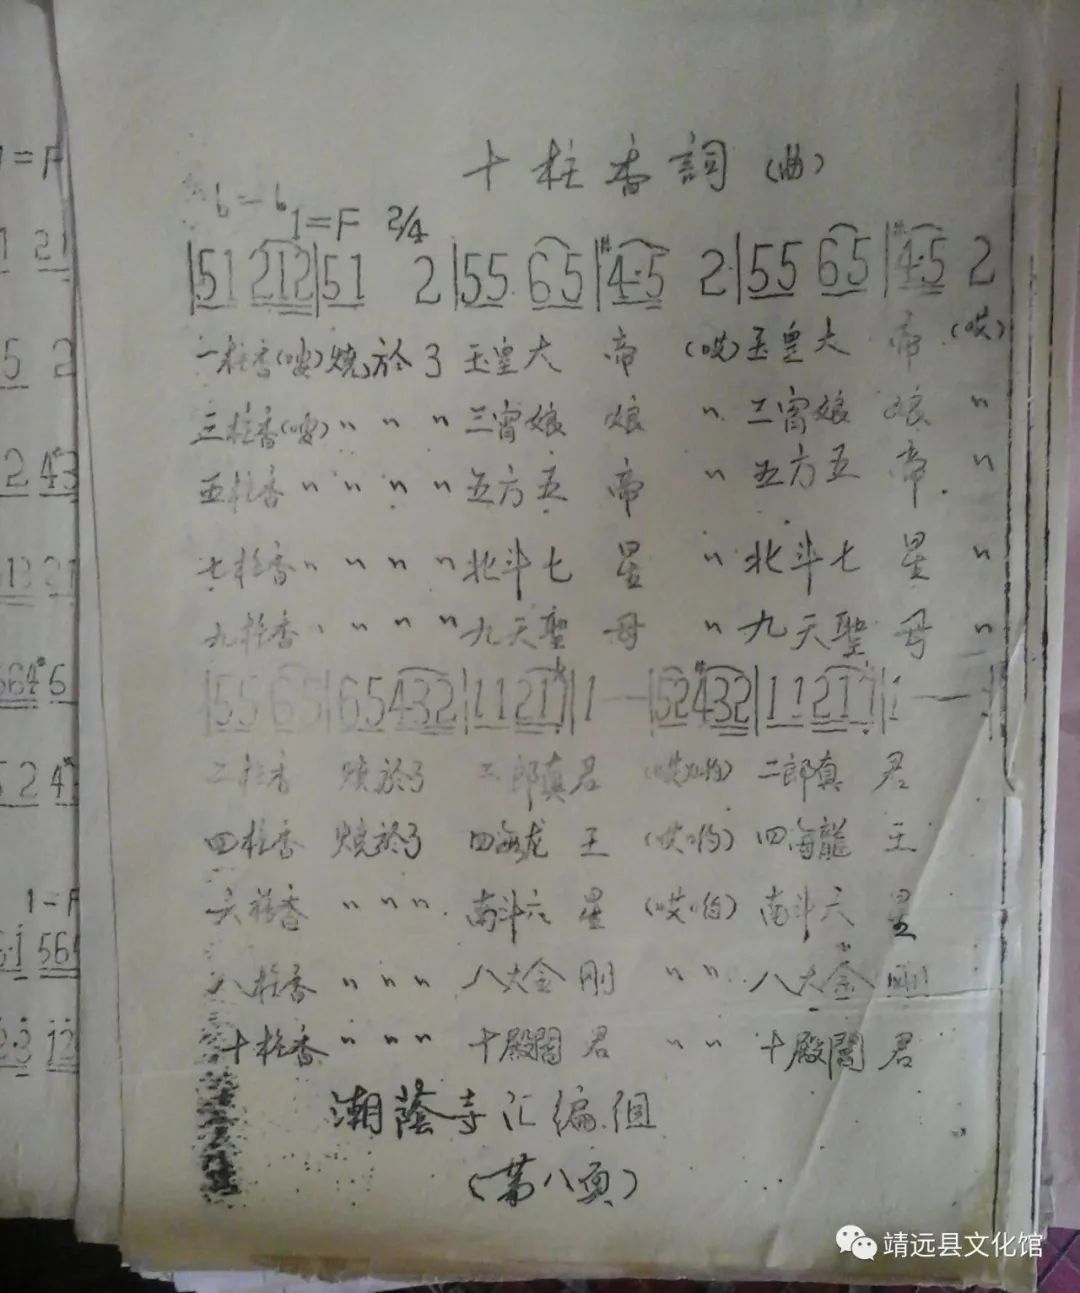 十柱香詞（曲）
6—6
1=F 2/4
|51 212|51 2|55 65|#4·5 2·|55 65|#4·5 2
一柱香(嗳)燒於了玉皇大帝(哎)玉皇大帝(哎)
三柱香(嗳)〃〃〃三宵娘娘〃三宵娘娘〃
五柱香〃〃〃〃五方五帝〃五方五帝〃
七柱香〃〃〃〃北斗七星〃北斗七星〃
九柱香〃〃〃〃九天聖母〃九天聖母〃
|55 65|65 432|11 217|1 —|52 #432|11 217|1 —|
二柱香 燒於了 二郎真君 二郎真君
四柱香 燒於了 四海龙王(哎哟)四海龍王
六柱香〃〃〃南斗六星(哎哟)南斗六星
八柱香〃〃〃八大金刚〃〃八大金剛
十柱香〃〃〃十殿閻君〃〃十殿閻君
潮蔭寺汇编组
（第八页）
1=F
1 21
5 2
2 4#3
664# 5
5 2 4#
1=F
靖远县文化馆